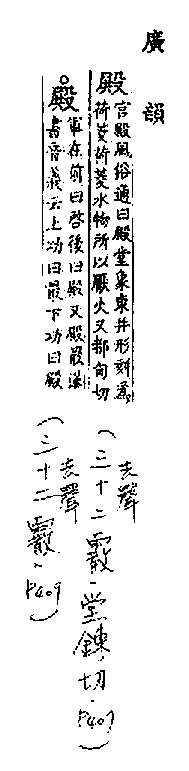 廣韻
殿宮殿風俗通曰殿堂象東井形刻為
荷菱荷菱水物所以厭火又都甸切
殿軍在前曰啓後曰殿又殿最漢
書音義云上功曰最下功曰殿
去聲
(三十二霰·堂練切·P407)
去聲
(三十二霰·P409)